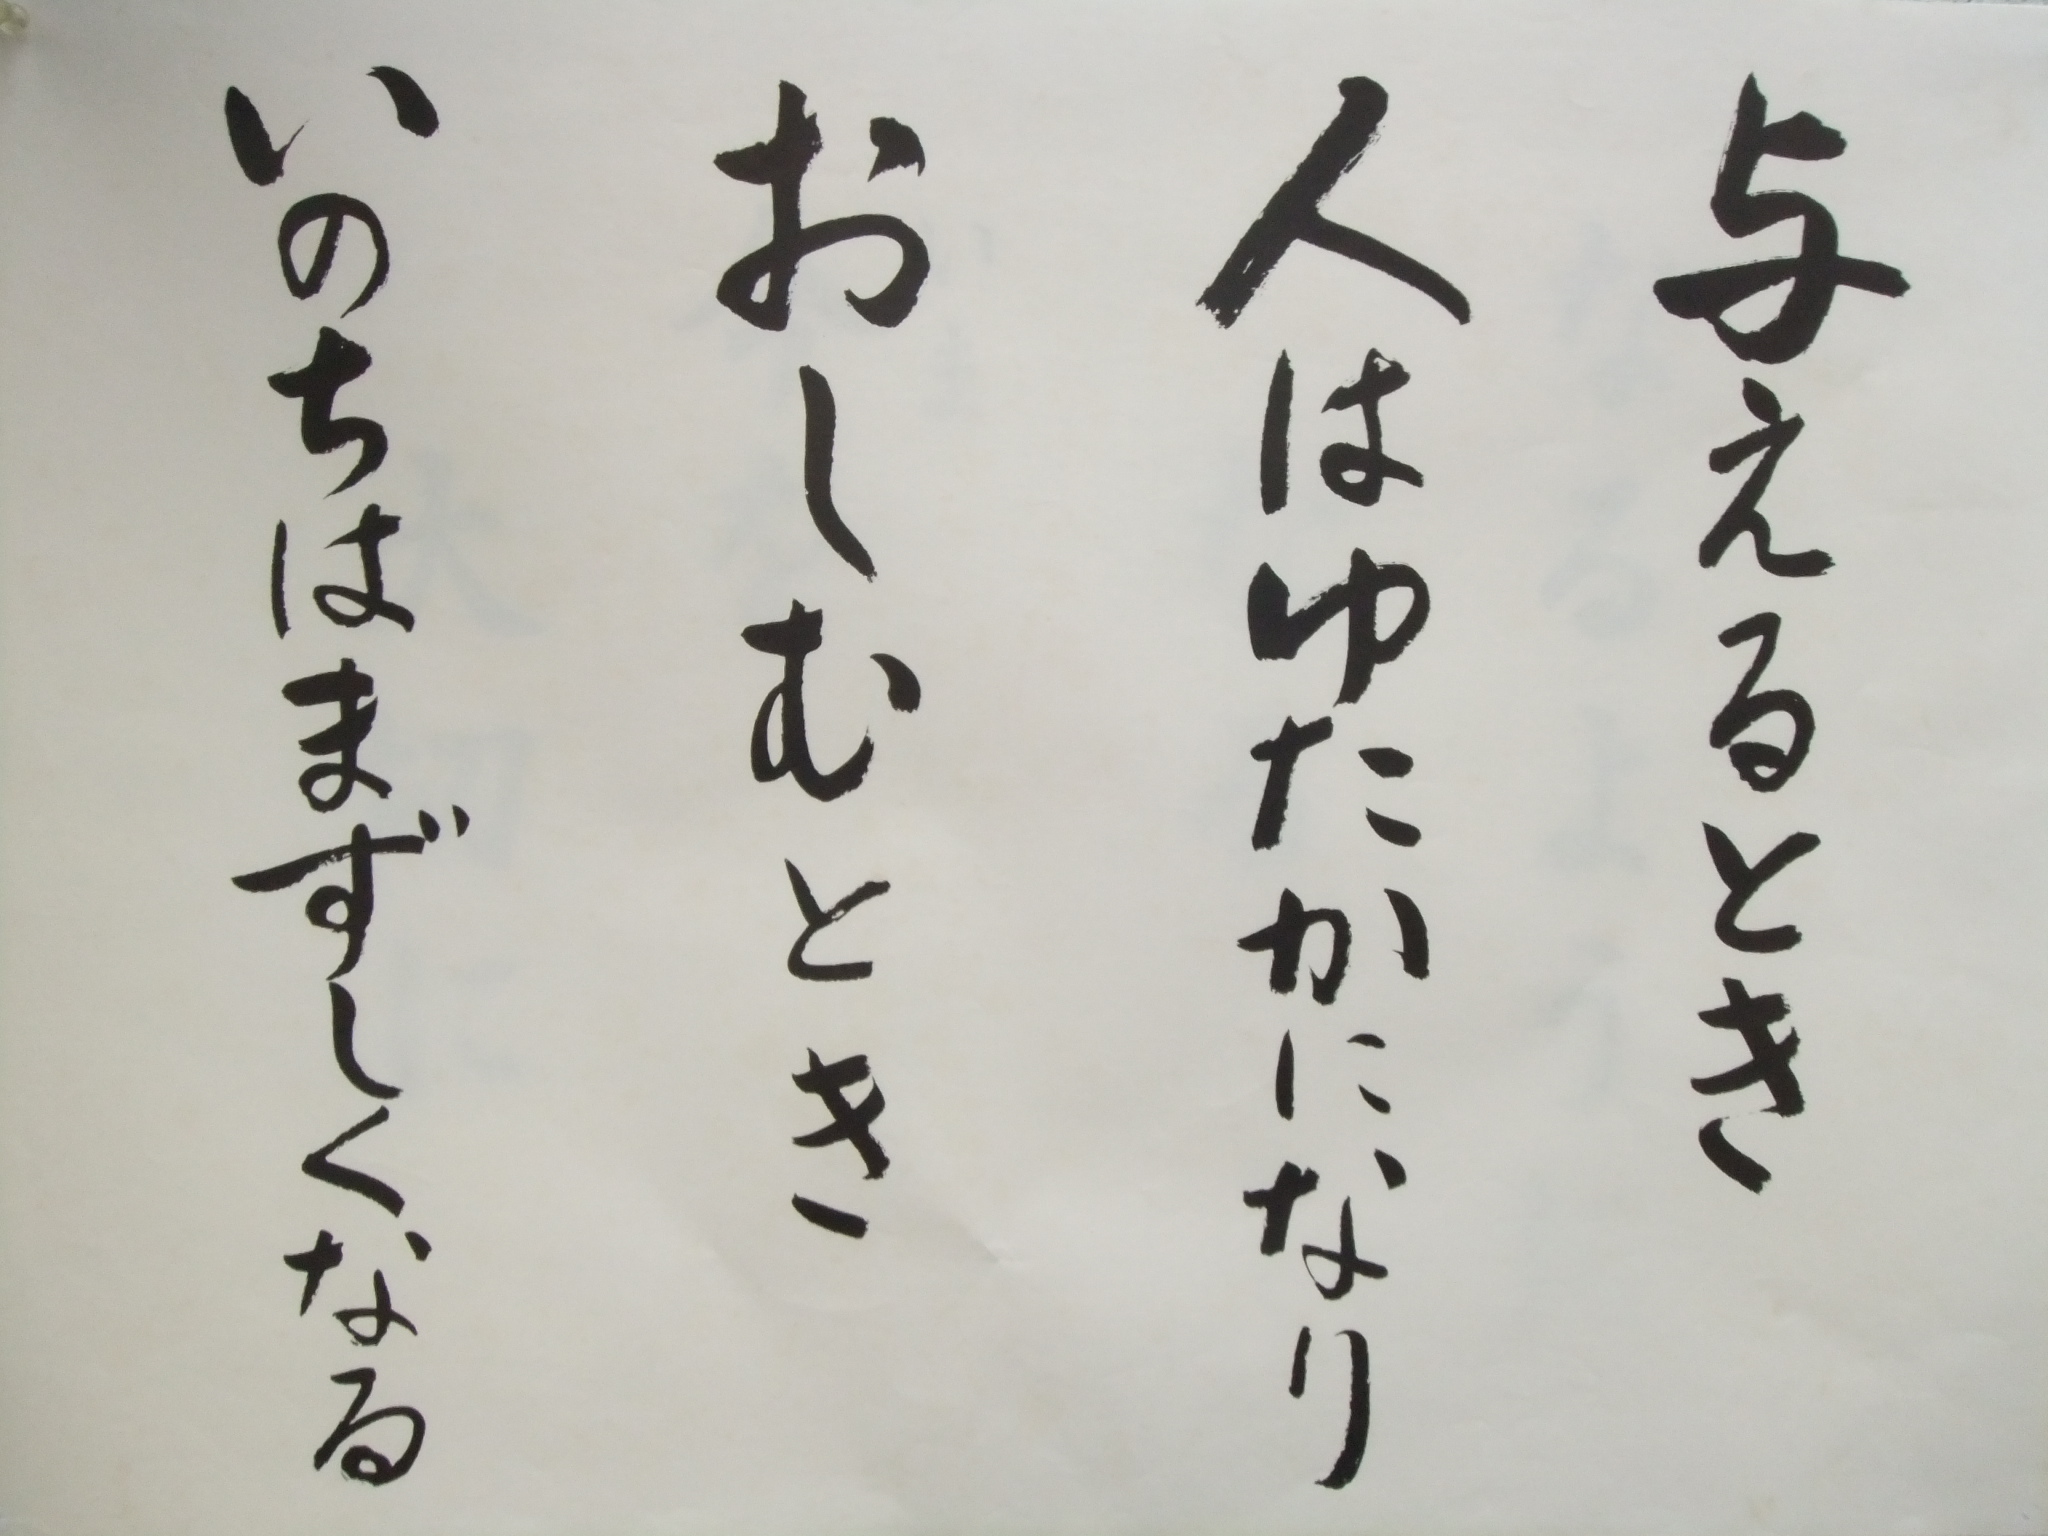 与えるとき
人はゆたかになり
おしむとき
いのちはまずしくなる